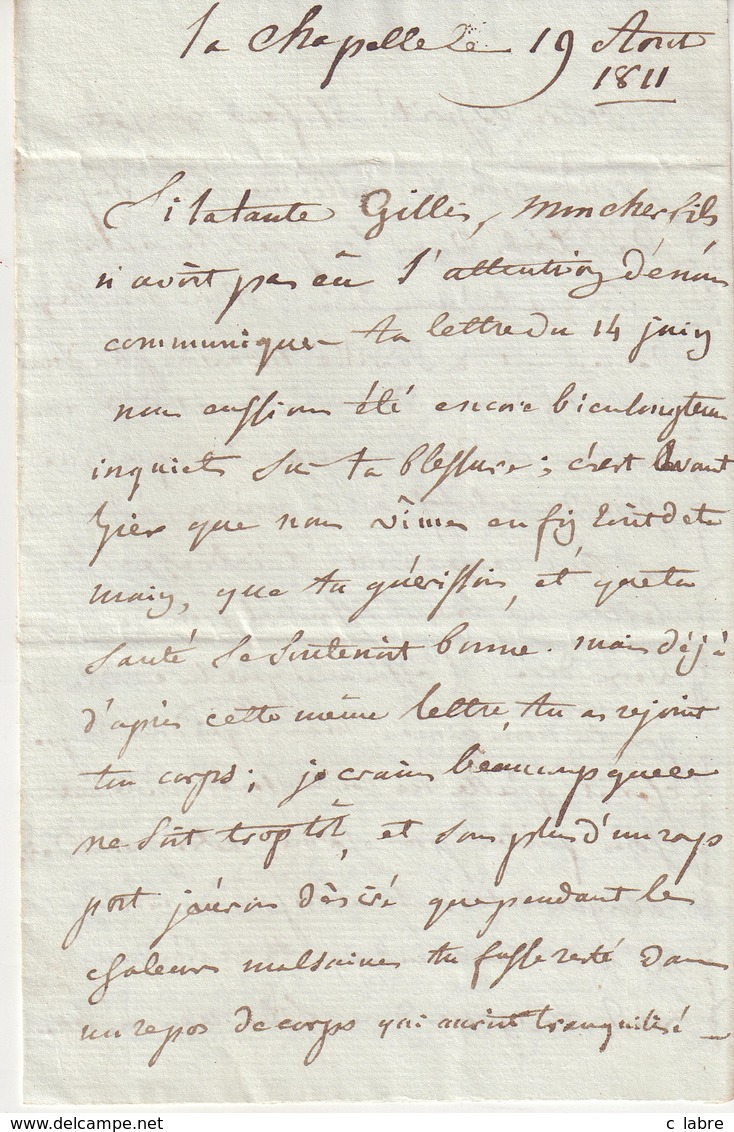 la Chapelle le 19 Aout
1811
Si ta tante Gilles, mon cher fils
n'avoit pas eû l'attention de nous
communiquer ta lettre du 14 juin
nous eussions été encore bien longtems
inquiets sur ta blessure ; c'est avant
hier que nous vîmes enfin écrit de ta
main, que tu guérissois, et que ta
santé se soutenoit bonne. mais déjà
d'après cette même lettre, tu as rejoint
ton corps ; je crains beaucoup que ce
ne soit trop tôt, et sous plus d'un rap
port j'aurois désiré que pendant les
chaleurs malsaines tu fusse resté dans
un repos de corps qui auroit tranquilisé
c labre